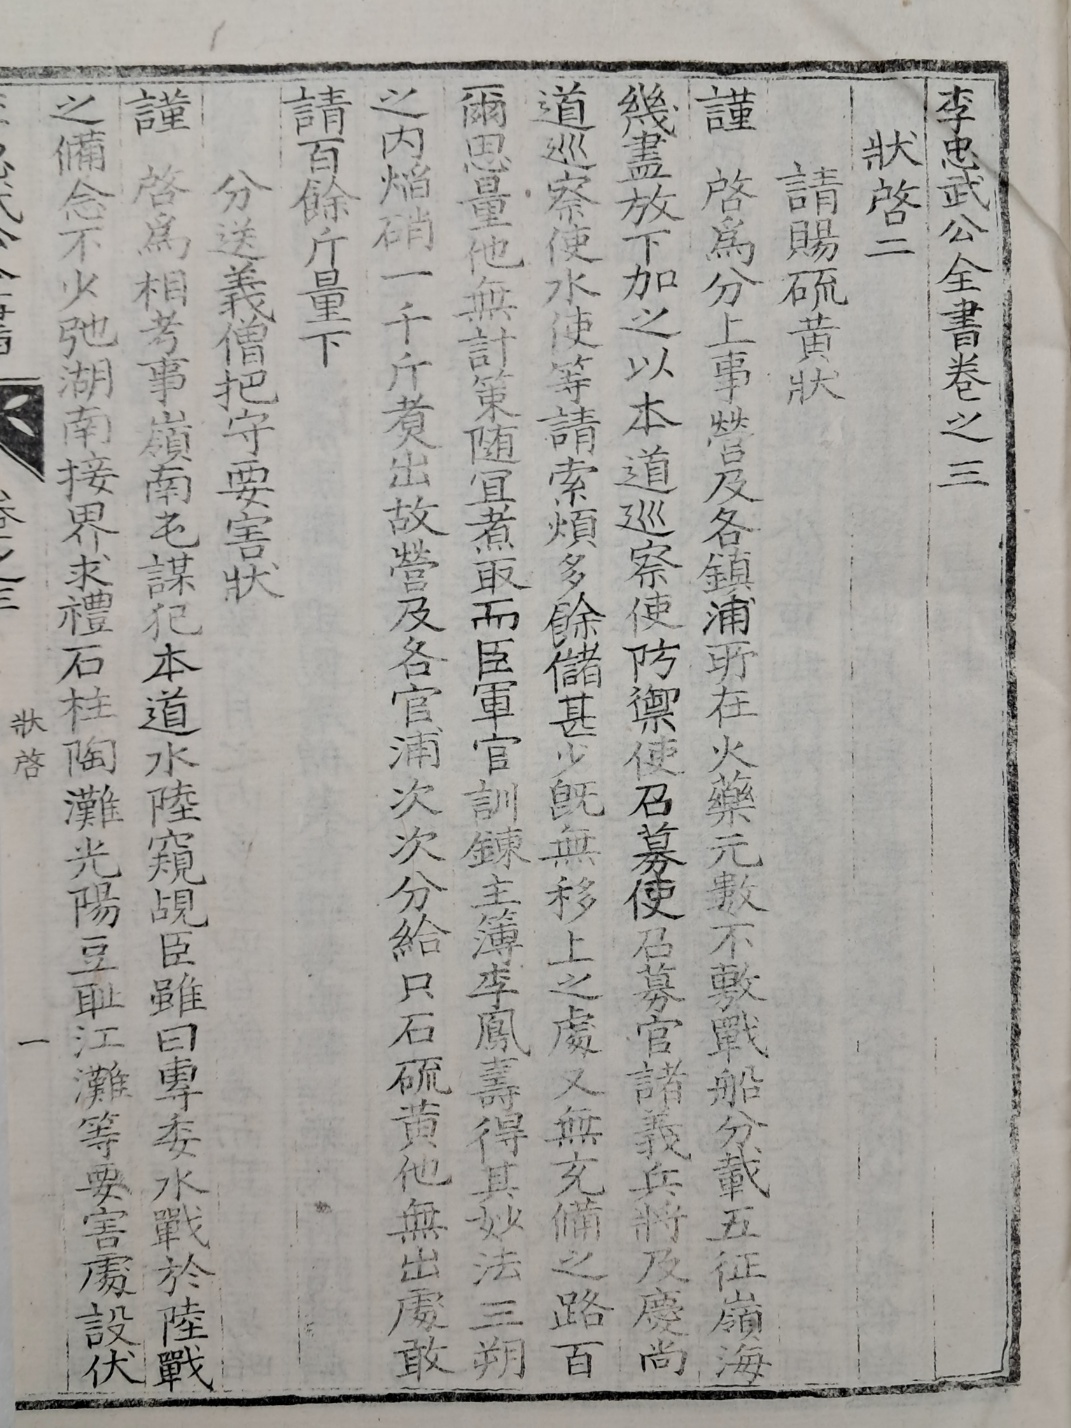 李忠武公全書卷之三
狀啓二
請賜硫黃狀
謹 啓爲分上事營及各鎭浦所在火藥元數不敷戰船分載五征嶺海
幾盡放下加之以本道巡察使防禦使召募使召募官諸義兵將及慶尙
道巡察使水使等請索煩多餘儲甚少旣無移上之處又無充備之路百
爾思量他無計策随冝煮取而臣軍官訓鍊主簿李鳳壽得其妙法三朔
之内焰硝一千斤煑出故營及各官浦次次分給只石硫黃他無出處敢
請百餘斤量下
分送義僧把守要害狀
謹 啓爲相考事嶺南屯謀犯本道水陸窺覘臣雖曰專委水戰於陸戰
之備念不少弛湖南接界求禮石柱陶灘光陽豆耻江灘等要害處設伏
卷之三
狀啓
一